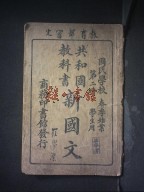 教育部審定
國民學校
春季始業
學生用
第二冊
共和國
教科書
新國文
商務印書館發行